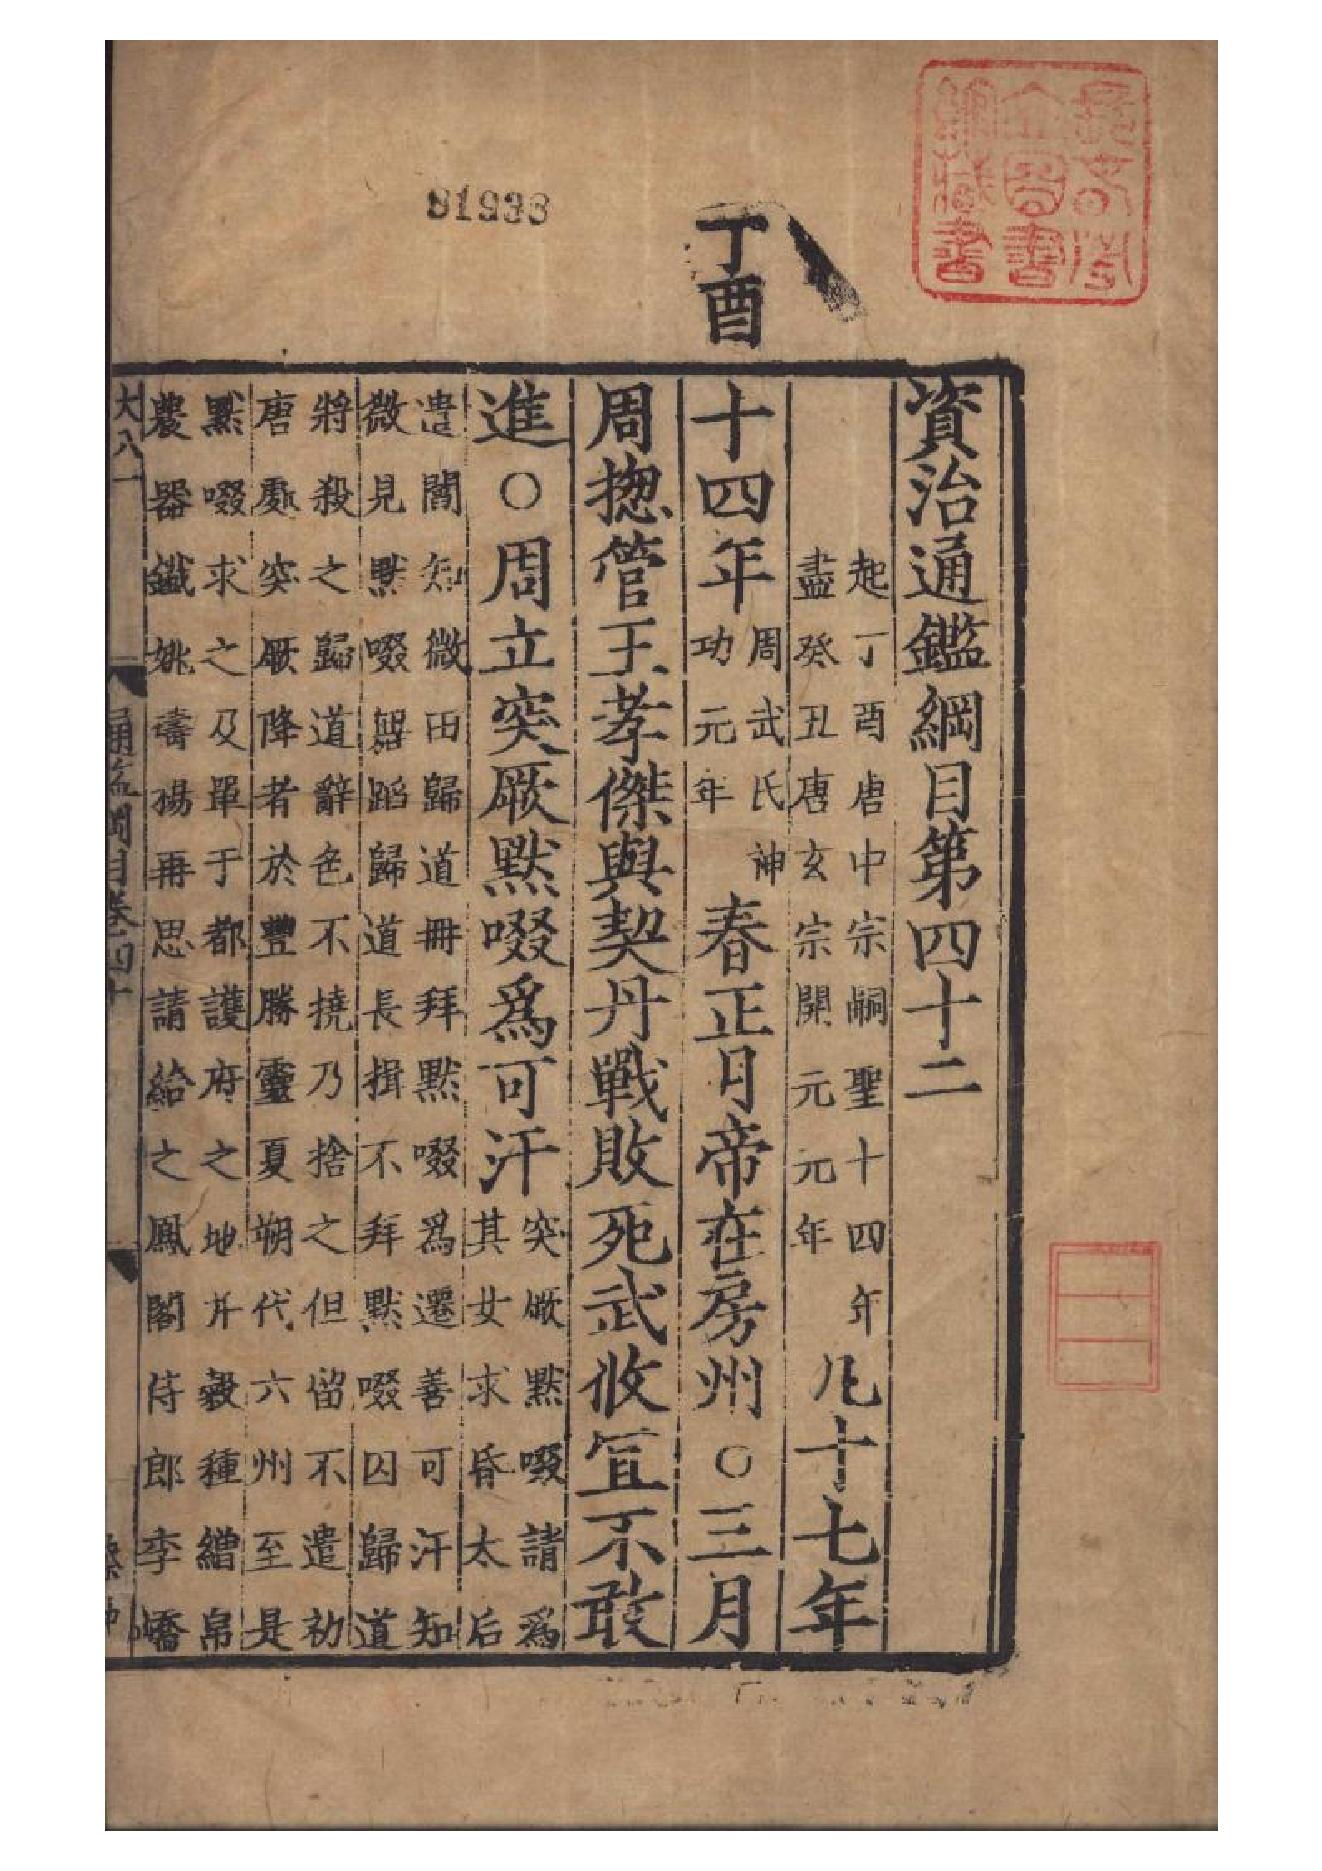 資治通鑑綱目第四十二
起丁酉唐中宗嗣聖十四年
盡癸丑唐玄宗開元元年
凡十七年
丁酉
十四年
周武氏神
功元年
春正月帝在房州○三月
周揔管王孝傑與契丹戰敗死武攸宜不敢
進○周立突厥默啜爲可汗
突厥默啜請爲
其女求昏太后
遣閻知微田歸道冊拜默啜爲遷善可汗知
微見默啜舞蹈歸道長揖不拜默啜囚歸道
將殺之歸道辭色不撓乃捨之但留不遣初
唐處突厥降者於豐勝靈夏朔代六州至是
默啜求之及單于都護府之地并穀種繒帛
農器鐵姚璹楊再思請給之鳳閣侍郎李嶠
大八一
通鑑綱目卷四十
81933
藏書